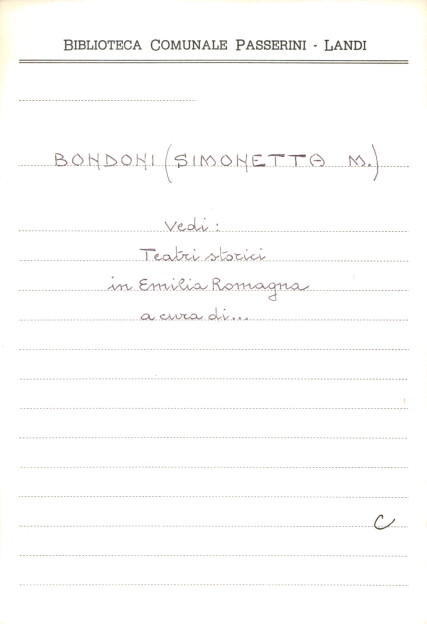 BIBLIOTECA COMUNALE PASSERINI - LANDI
BONDONI (SIMONETTA M.)
Vedi:
Teatri storici
in Emilia Romagna
a cura di...
C